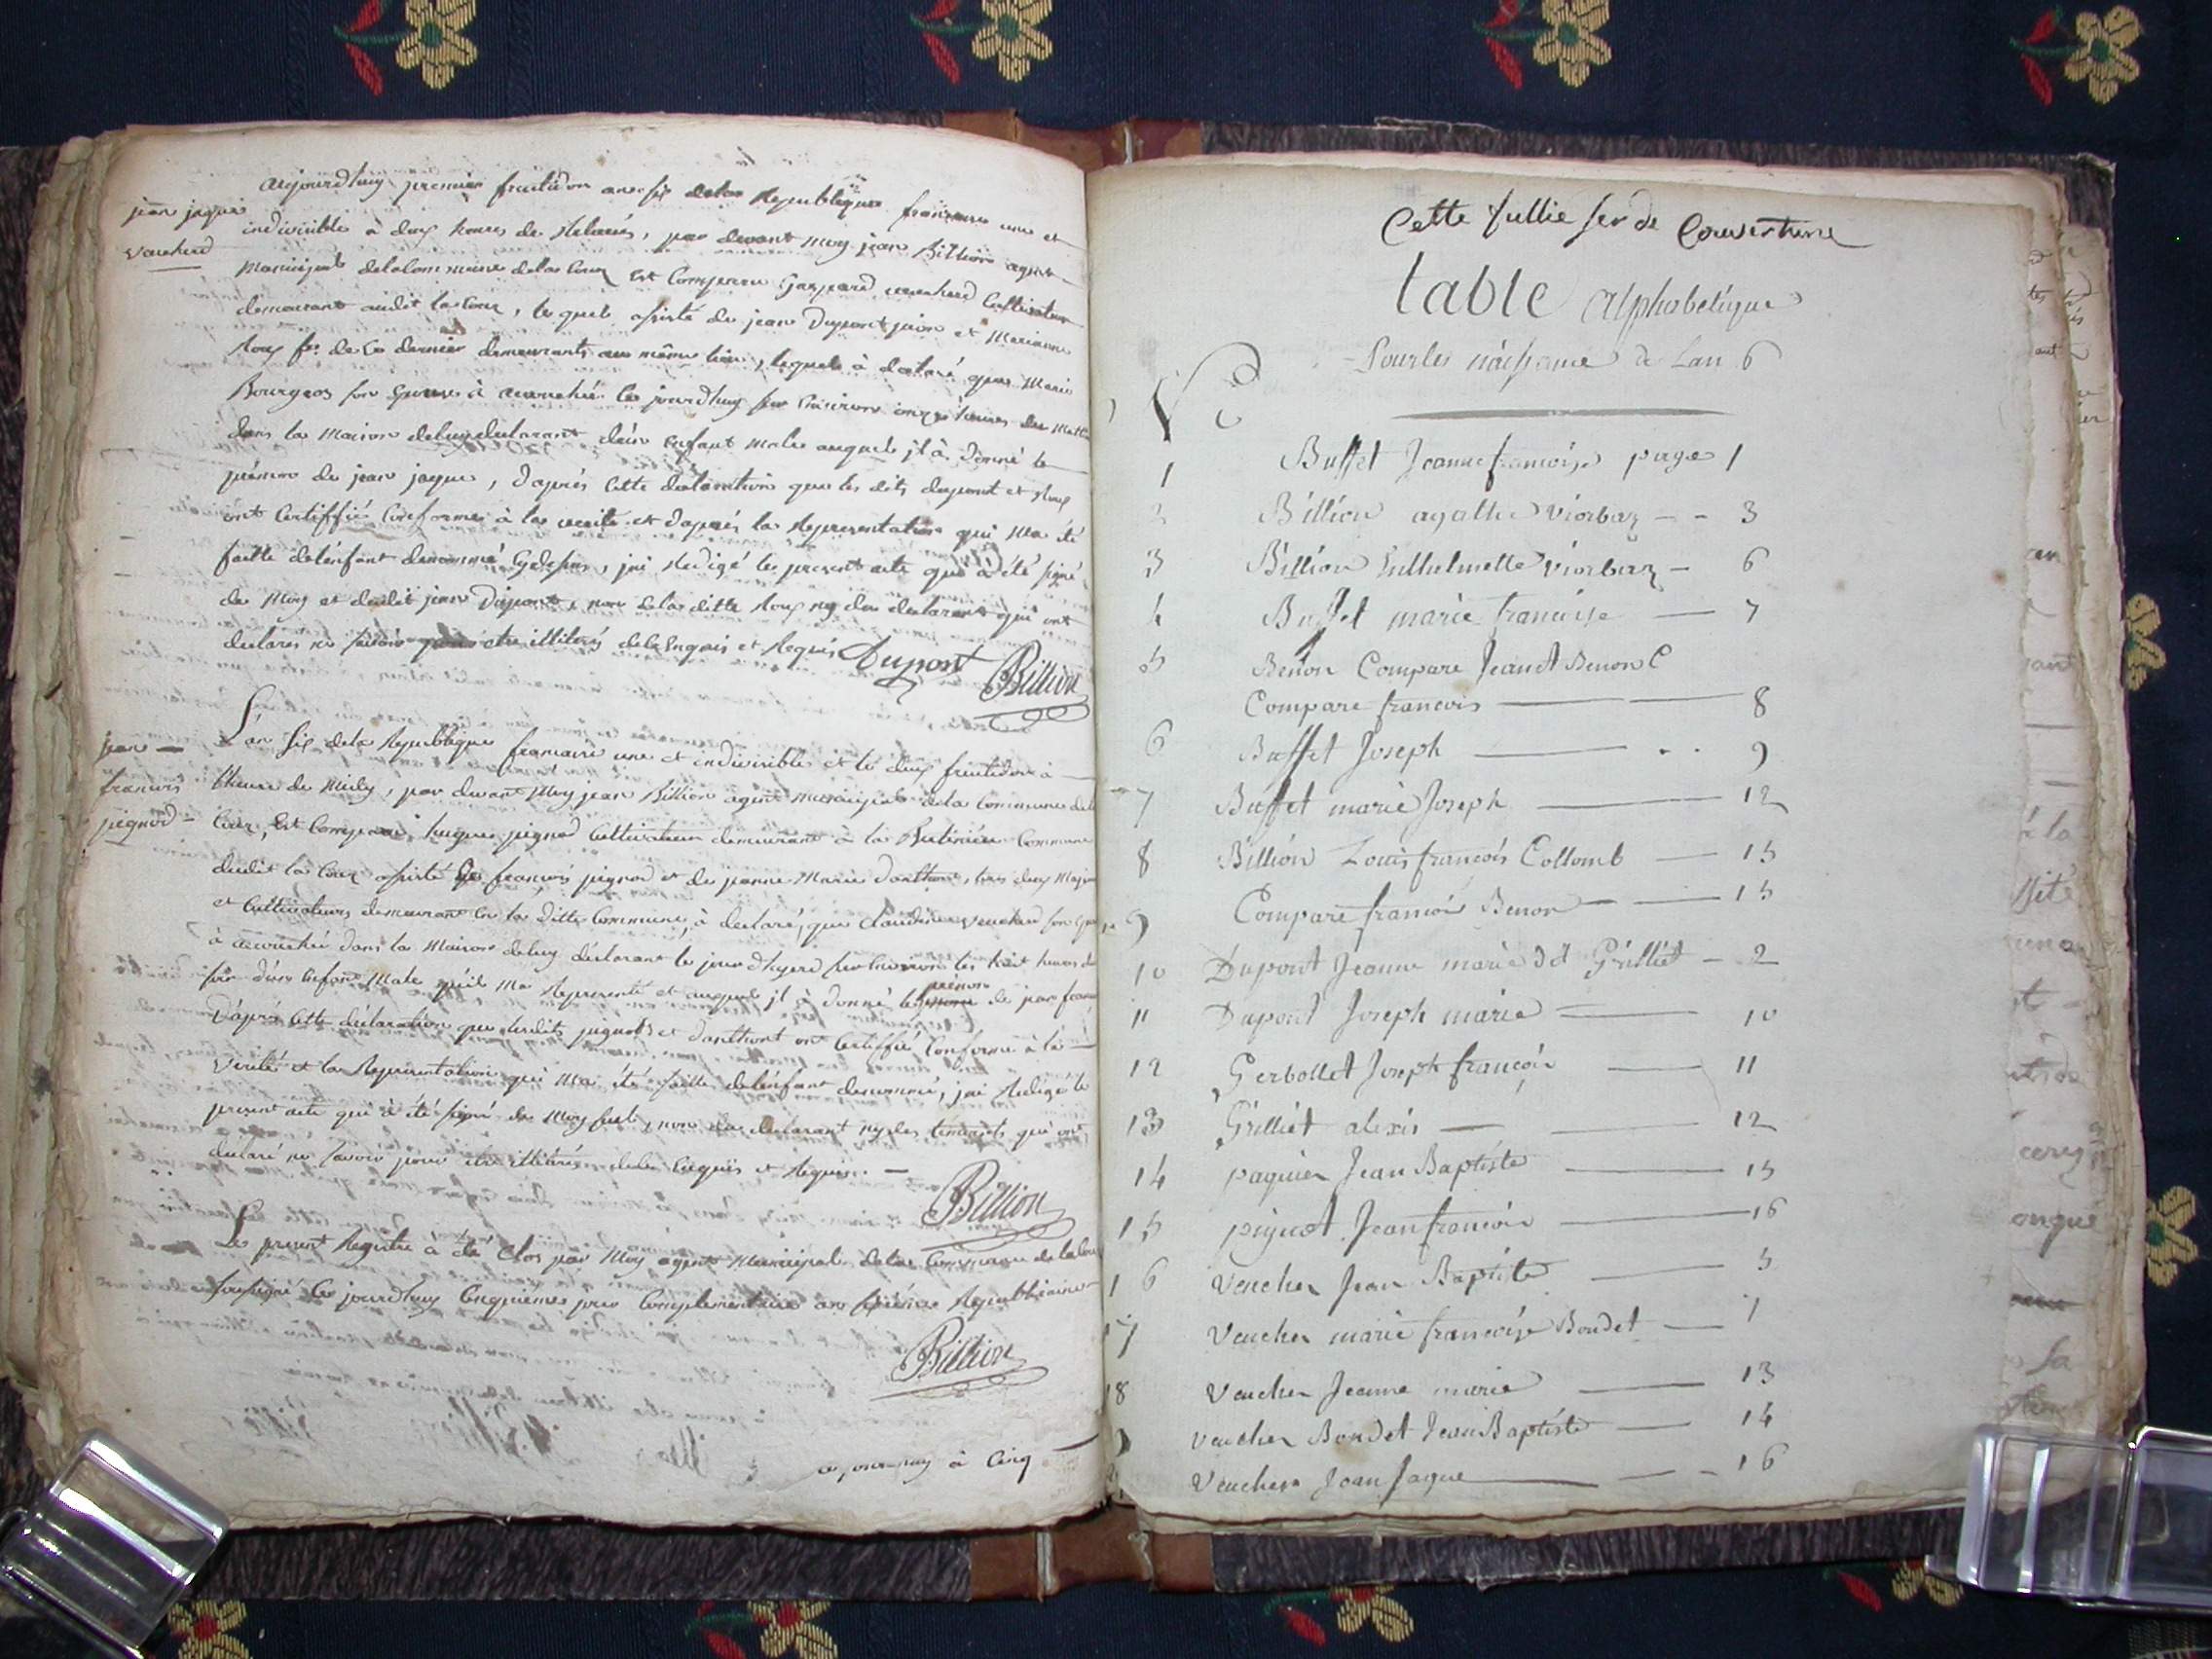 aujourdhuy premier fructidor an six dela Republique francaise une et
jean jaque
vaucherd
indivisible à dix heures de Relevée, par devant moy jean Billion agent
municipal delacommune dela Cour Est Comparu Gaspard vaucherd Cultivateur
demeurant audit la Cour, le quel assisté de jean Dupont et Marianne
de Ce dernier demeurants au même lieu, lequel à declaré que Marie
Bourgeos son Epouse à accouchée ce jourdhuy sur Environ onze heures du Matin
dans la Maison deluy declarant d'un enfant male auquel jl à donné le
prénom de jean jaque, d'aprés Cette declaration que les dits dupont et
ont Certiffié Conforme à la verité et d'aprés la Representation qui ma été
faitte delénfant denommé Cydessus, jai Redigé le present acte qui à été signé
de Moy et dudit jean Dupont, non dela ditte ny du declarant qui ont
declarés ne savoir pour etre illiterés delenquis et Requis Dupont Billion
jean —
francois
pignod -
L'an six dela Republique francaise une et indivisible et le deux fructidor à
lheure de Midy, par devant Moy jean Billion agent municipal dela Commune dela
Cour, Est Comparu hugue pignod Cultivateur demeurant à la Commune
dudit la Cour assisté de francois pignod et de jeanne Marie danthon, tous deux Majeurs
et Cultivateurs demeurant en la ditte Commune, à declaré, que Claudine vaucherd son Epouse
à accouchée dans la Maison deluy déclarant le jour d'hyerd sur Environ les huit heures du
soir d'un Enfant Male qu'il Ma Representé et auquel jl à donné le prénom de jean francois
D'aprés Cette déclaration que lesdits pignod et danthont ont Certiffié Conforme à la —
verité et la Representation qui Ma été faitte delénfant denommé, jai Redigé le
present acte qui à été signé de Moy seul, non du declarant ny des témoints qui ont
declaré ne savoir pour etre illiterés delenquis et Requis. —
Billion
Le present Registre à été Clos par Moy agent Municipal dela Commune de la Cour
soussigné Ce jourdhuy Cinquiémes jour Complementaire an sixiéme Republicaine
Billion
ajourdhuy à Cinq —
Cette fullie ser de Couverture
table alphabetique
Pour les naissance de Lan 6
1 Buffet Jeanne francoise page 1
2 Billion agathe Viorbaz - - 3
3 Billion Guilhelmette Viorbaz - 6
4 Buffet marie francoise — 7
5 Benon Compare Jean et Benon C
Compare francois — — 8
6 Buffet Joseph — . . 9
7 Buffet marie Joseph — 12
8 Billion Louis francois Collomb — 15
9 Compare francois Benon — — 15
10 Dupont Jeanne marie dt Grilliet - 2
11 Dupont Joseph marie — 10
12 Gerbollet Joseph francois — 11
13 Grilliet alexis — — 12
14 paquier Jean Baptiste — 15
15 pignot Jean francois — 16
16 Vaucher Jean Baptiste — 5
17 Vaucher marie francoise Boudet — 7
18 Vaucher Jeanne marie — 13
Vaucher Boudet Jean Baptiste — 14
Vaucher Jean Jaque — — - 16